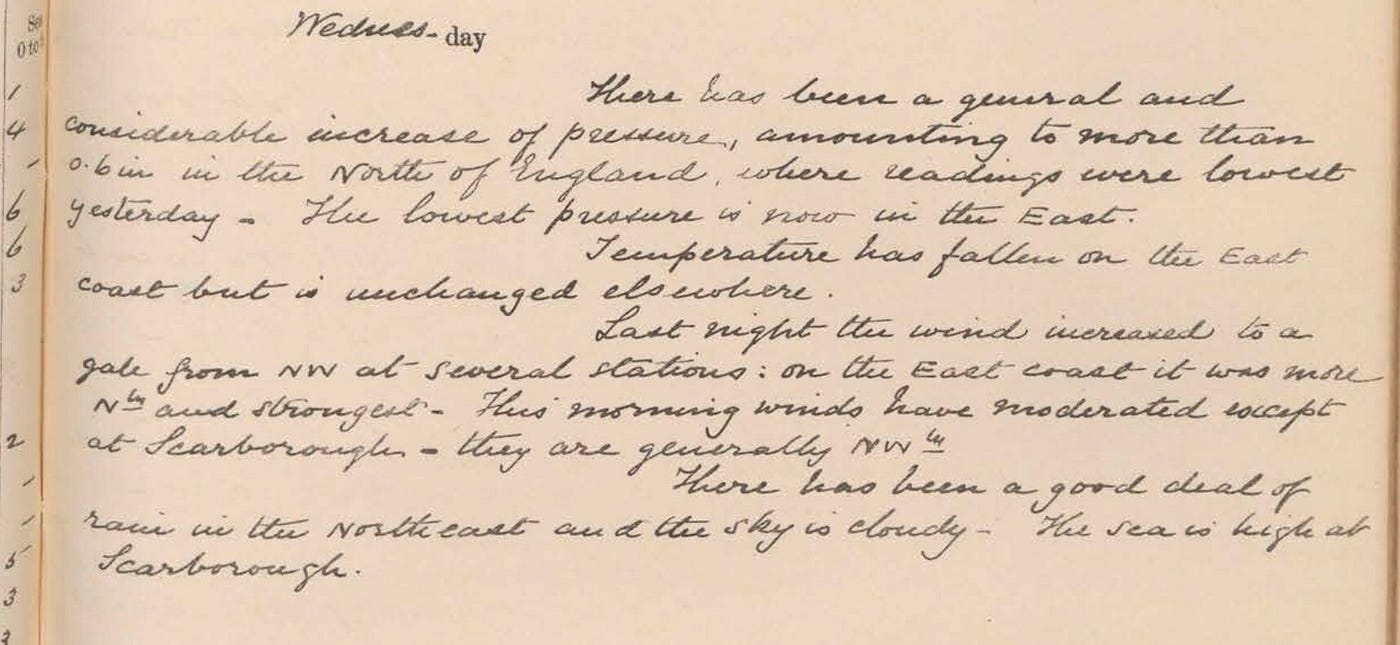 Sea
0 to
Wednes-day
1
There has been a general and
4
considerable increase of pressure, amounting to more than
1
0.6 in in the North of England, where readings were lowest
6
yesterday - The lowest pressure is now in the East.
6
Temperature has fallen on the East
3
coast but is unchanged elsewhere.
Last night the wind increased to a
gale from NW at several stations: on the East coast it was more
Nly and strongest - This morning winds have moderated except
2
at Scarborough - they are generally NWly
1
There has been a good deal of
1
rain in the North east and the sky is cloudy - The sea is high at
5
Scarborough.
3
3